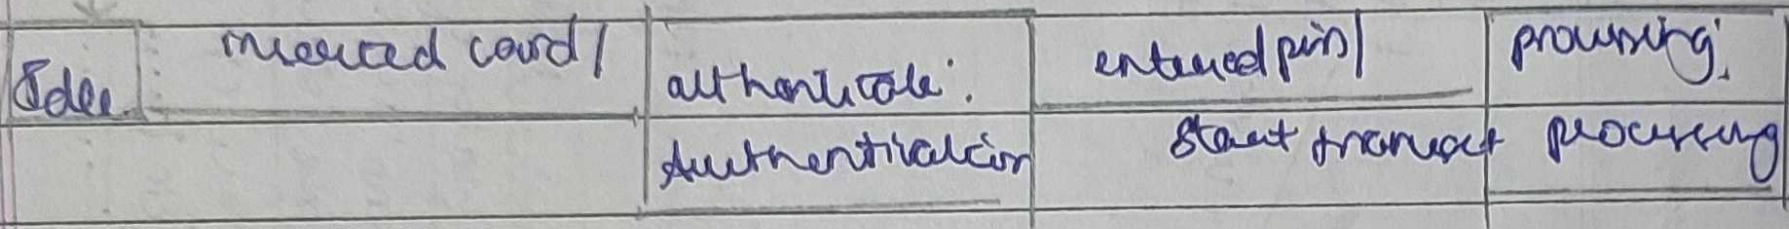 Idle inserted card/ authenticate: entered pin/ processing:
Authentication start transact processing